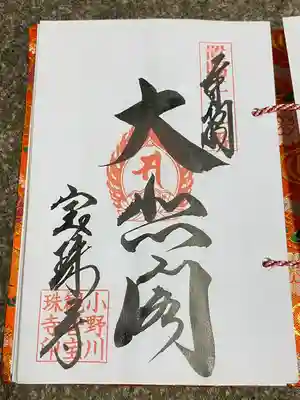 奉拝
大悲閣
宝珠寺
小野川
珠寺印